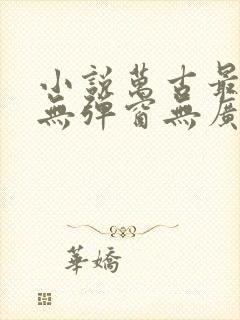 小說萬古最
無彈窗無廣
華嬌